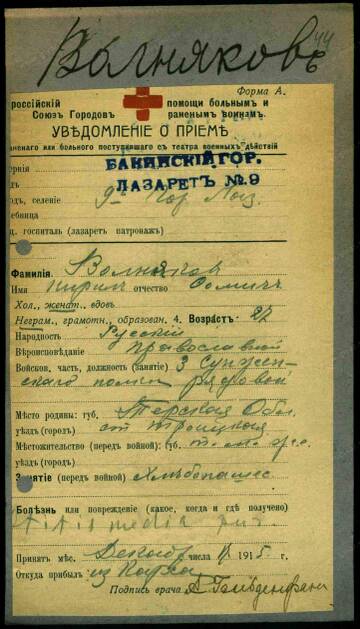 Волняковъ
44
Форма А.
россійскій помощи больнымъ и
Союзъ Городовъ раненымъ воинамъ.
УВѢДОМЛЕНІЕ О ПРІЕМѢ
раненаго или больного поступившаго съ театра военныхъ дѣйствій
БАКИНСКІЙ ГОР.
ЛАЗАРЕТЪ №9
ернія
дъ, селеніе
чебница
ц. госпиталь (лазаретъ патронажъ)
Фамилія. Волняков
Имя Кирил отчество
Хол., женат., вдов.
Неграм., грамотн., образован. 4. Возрастъ: 22
Народность Русскій
Вѣроисповѣданіе Православной
Войсков. часть, должность (занятіе) 3 Сунжен-
скаго полка рядовой
Мѣсто родины: губ. Терская Обл.
уѣздъ (городъ) ст Троицкая
Мѣстожительство (передъ войной): губ. то-же
уѣздъ (городъ)
Занятіе (передъ войной) Хлѣбопашес
Болѣзнь или поврежденіе (какое, когда и гдѣ получено)
Otitis media pur.
Принятъ мѣс. Декабр числа 1915 г.
Откуда прибылъ из Карса
Подпись врача